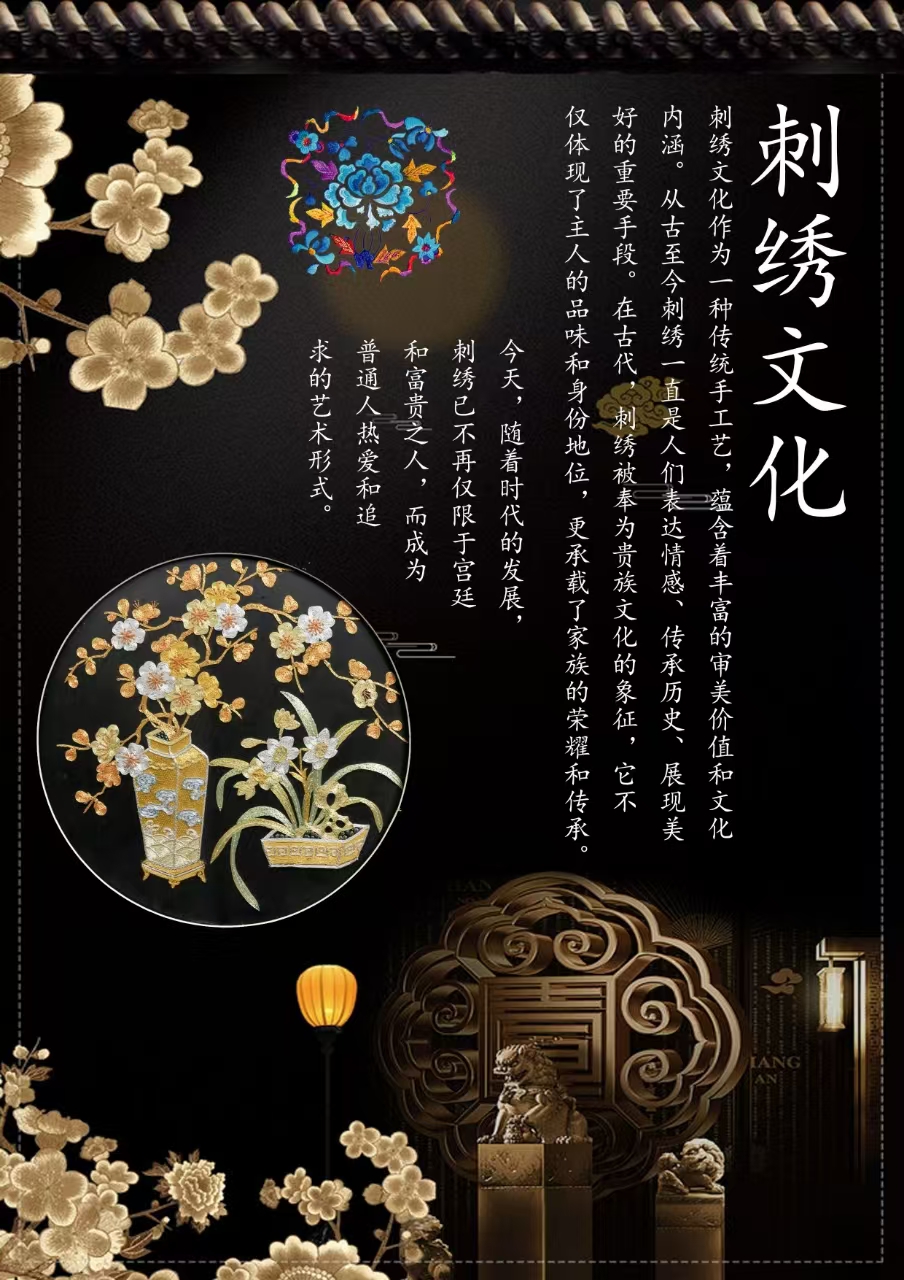 刺绣文化
刺绣文化作为一种传统手工艺，蕴含着丰富的审美价值和文化
内涵。从古至今刺绣一直是人们表达情感、传承历史、展现美
好的重要手段。在古代，刺绣被奉为贵族文化的象征，它不
仅体现了主人的品味和身份地位，更承载了家族的荣耀和传承。
今天，随着时代的发展，
刺绣已不再仅限于宫廷
和富贵之人，而成为
普通人热爱和追
求的艺术形式。
IANG
AN